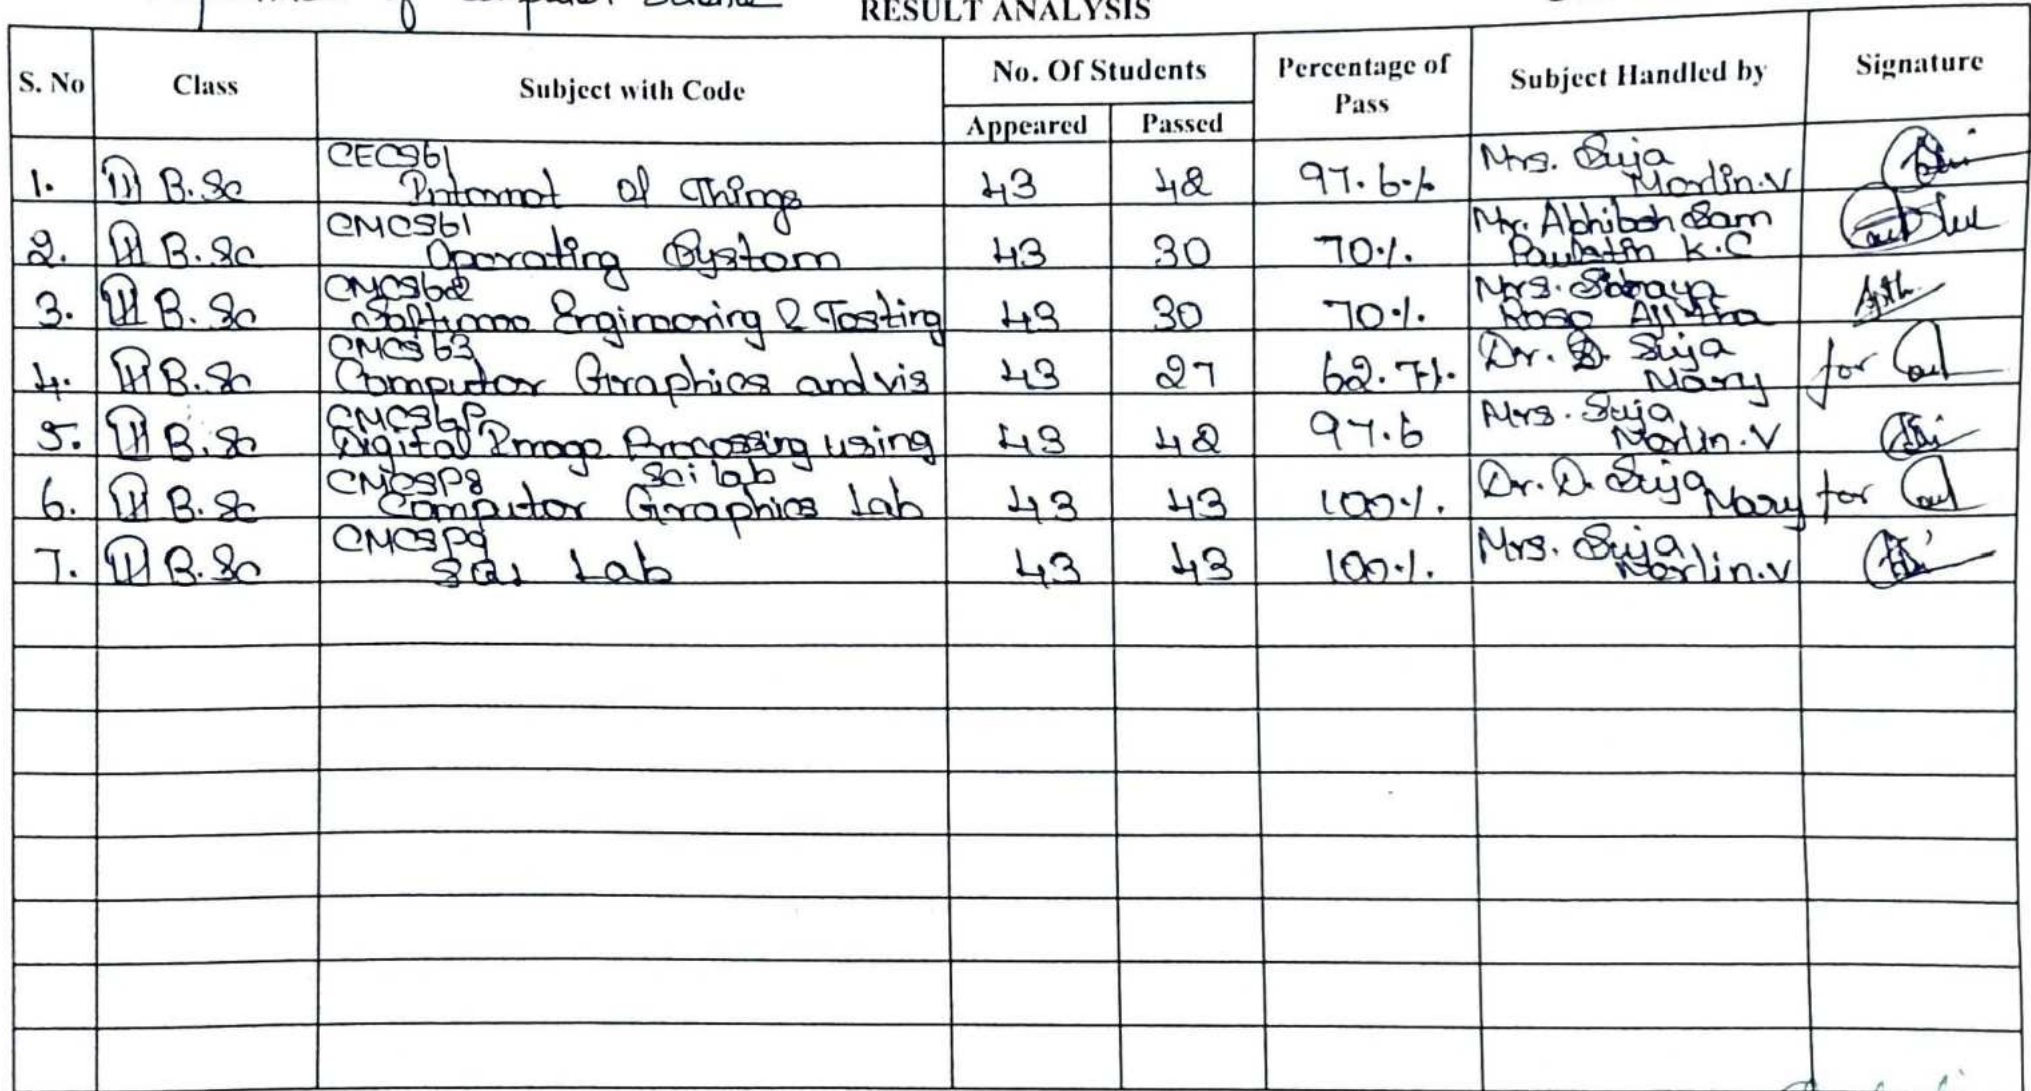 of Computer Science
RESULT ANALYSIS
S. No Class Subject with Code No. Of Students Percentage of Pass Subject Handled by Signature
Appeared Passed
1. III B.Sc CECS61 Internet of Things 43 42 97.6% Mrs. Suja Merlin.V
2. III B.Sc CMCS61 Operating System 43 30 70% Mr. Abhibesh Sam K.C
3. III B.Sc CMCS62 Software Engineering & Testing 43 30 70% Mrs. Rose Ajitha
4. III B.Sc CMCS63 Computer Graphics and vis 43 27 62.7% Dr. D. Suja Mary for
5. III B.Sc CMCS6P Digital Image Processing using Sci lab 43 42 97.6 Mrs. Suja Merlin.V
6. III B.Sc CMCSP8 Computer Graphics Lab 43 43 100% Dr. D. Suja Mary for
7. III B.Sc CMCSP9 Lab 43 43 100% Mrs. Suja Merlin.V